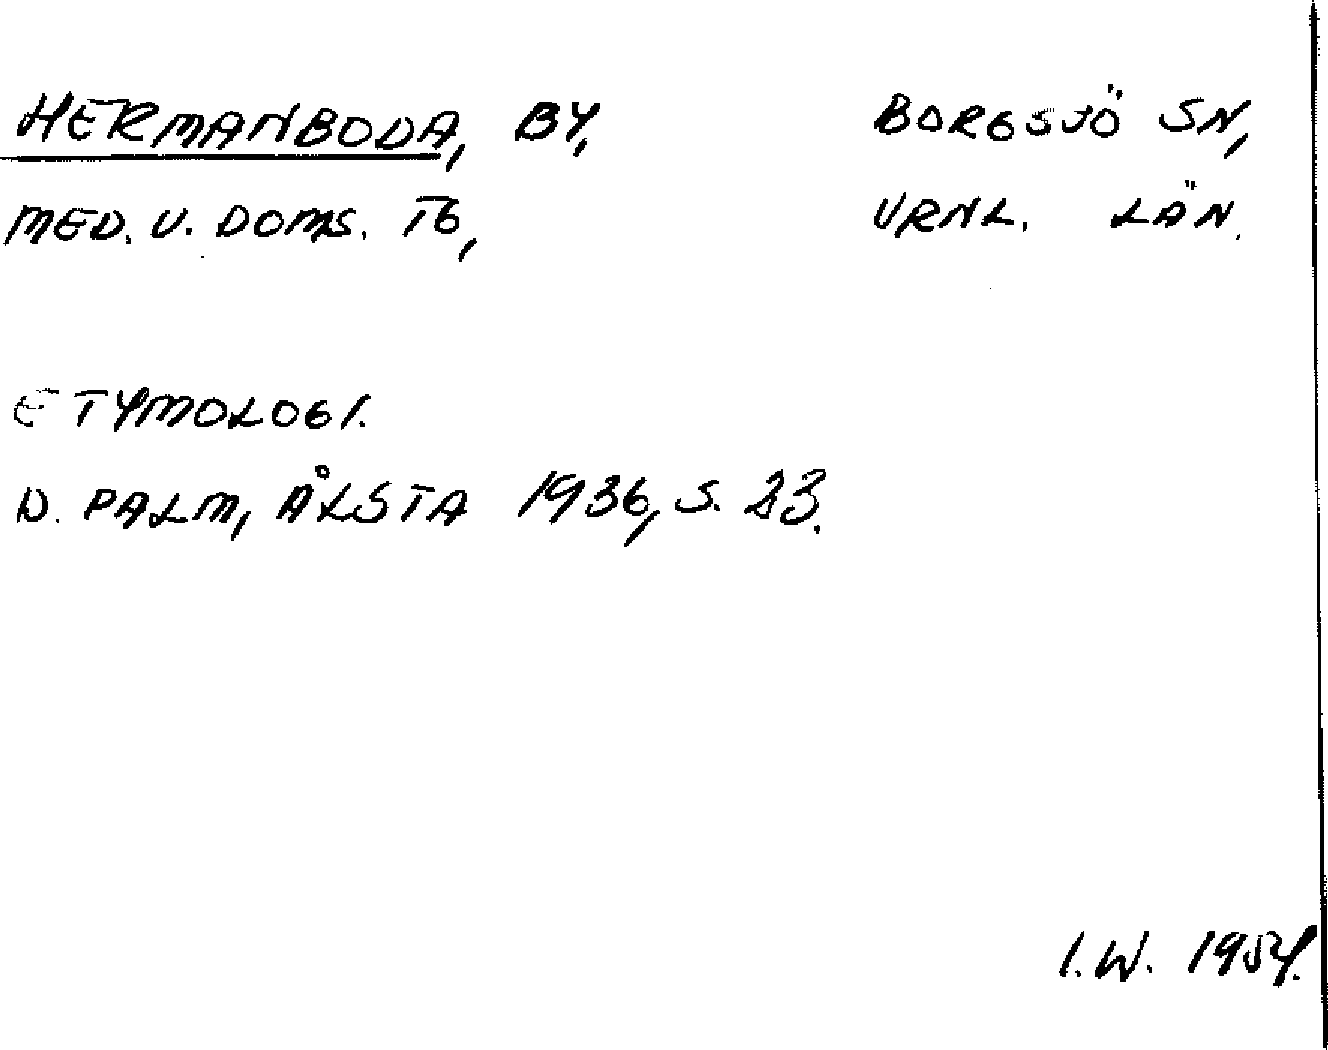 HERMANBODA, BY, BORGSJÖ SN,
MED. V. DOMS. TG, VRNL. LÄN.
ETYMOLOGI.
D. PALM, ÅLSTA 1936, S. 23.
I.W. 1954.